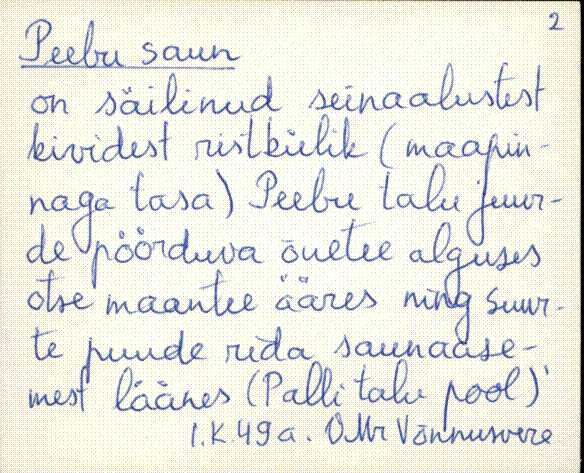 2
Peebu saun
on säilinud seinaalustest
kividest ristkülik (maapin-
naga tasa) Peebu talu juur-
de pöörduva õuetee alguses
otse maantee ääres ning suur-
te puude rida saunaase-
mest läänes (Palli talu pool)
I.K. 49 a. Võnnusvere